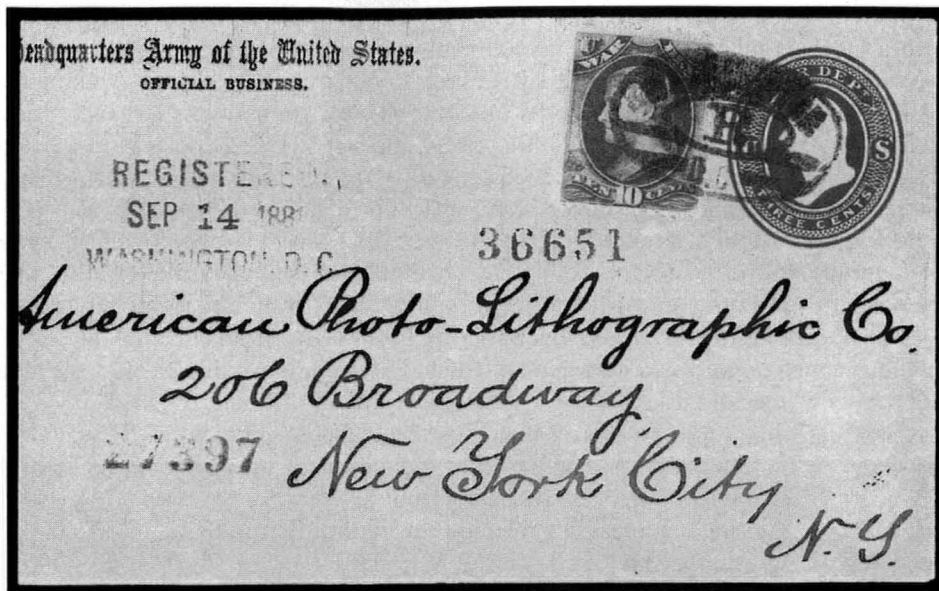 Headquarters Army of the United States.
OFFICIAL BUSINESS.
WAR
TEN 10 CENTS
DEPT
U S
THREE CENTS
REGISTERED
SEP 14 188
WASHINGTON, D.C.
36651
American Photo-Lithographic Co.
206 Broadway,
27397
New York City
N.Y.